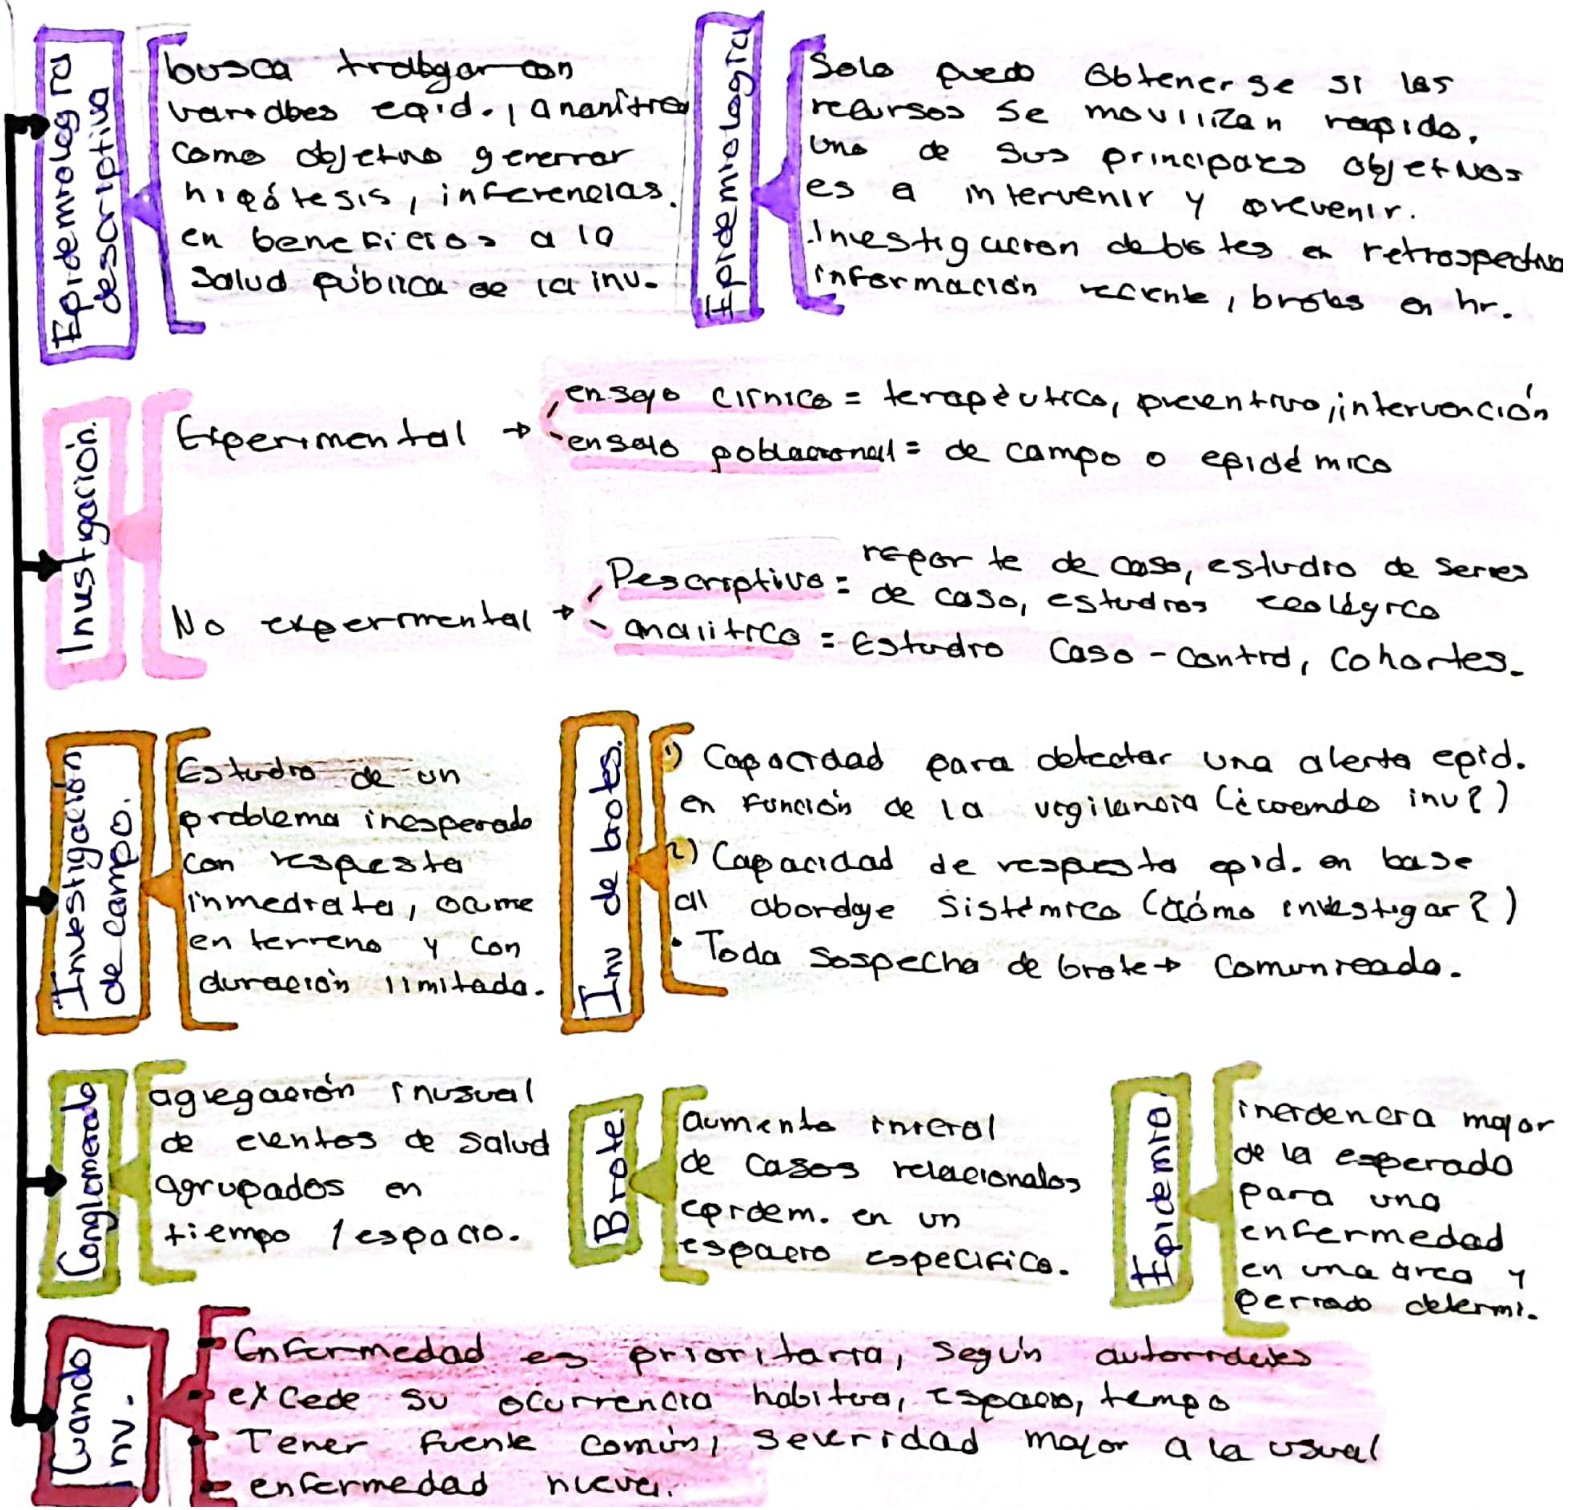 Epidemiología
descriptiva
busca trabajar con
variables epid., ananítica
como objetivo generar
hipótesis, inferencias.
en beneficios a la
salud pública de la inv.
Epidemiología
Solo puedo obtenerse si los
recursos se movilizan rapido.
uno de sus principales objetivos
es a intervenir y prevenir.
Investigación debates en retrospectiva
información reciente, brotes en hr.
Investigación.
Experimental →
ensayo clínico = terapéutico, preventivo, intervención
ensayo poblacional = de campo o epidémico
No experimental →
Descriptivo = reporte de caso, estudio de series
de caso, estudios ecológico
analítico = Estudio Caso-control, Cohortes.
Investigación
de campo.
Estudio de un
problema inesperado
con respuesta
inmediata, ocurre
en terreno y con
duración limitada.
Inv de brotes.
1) Capacidad para detectar una alerta epid.
en función de la vigilancia (¿cuando inv?)
2) Capacidad de respuesta epid. en base
al abordaje sistémico (¿cómo investigar?)
• Toda sospecha de brote → comunicada.
Conglomerado
agregación inusual
de eventos de salud
agrupados en
tiempo / espacio.
Brote
aumento inicial
de casos relacionados
epidem. en un
espacio especifico.
Epidemia
incidencia mayor
de la esperado
para una
enfermedad
en una área y
periodo determi.
Cuando
inv.
• Enfermedad es prioritaria, según autoridades
• excede su ocurrencia habitua, espacio, tempo
• Tener fuente común, severidad mayor a la usual
• enfermedad nueva.